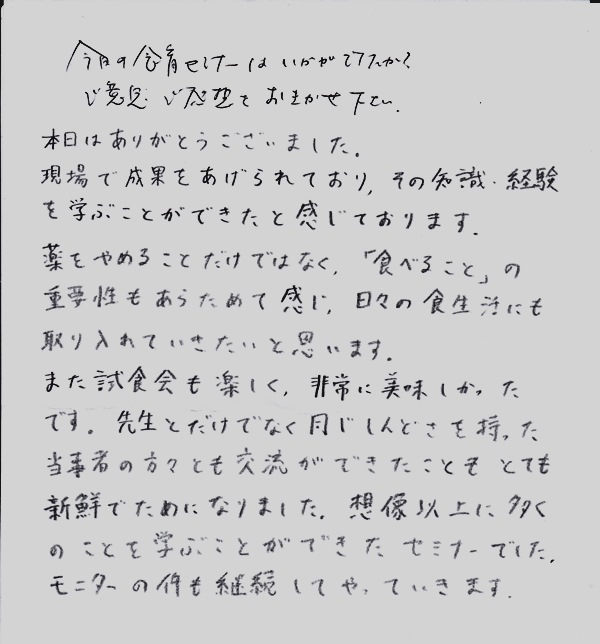 今日の食育セミナーはいかがでしたか?
ご意見・ご感想をおきかせ下さい.
本日はありがとうございました。
現場で成果をあげられており, その知識・経験
を学ぶことができたと感じております.
薬をやめることだけではなく, 「食べること」の
重要性もあらためて感じ, 日々の食生活にも
取り入れていきたいと思います.
また試食会も楽しく, 非常に美味しかった
です. 先生とだけでなく同じしんどさを持った
当事者の方々とも交流ができたこともとても
新鮮でためになりました. 想像以上に多く
のことを学ぶことができたセミナーでした.
モニターの件も継続してやっていきます.